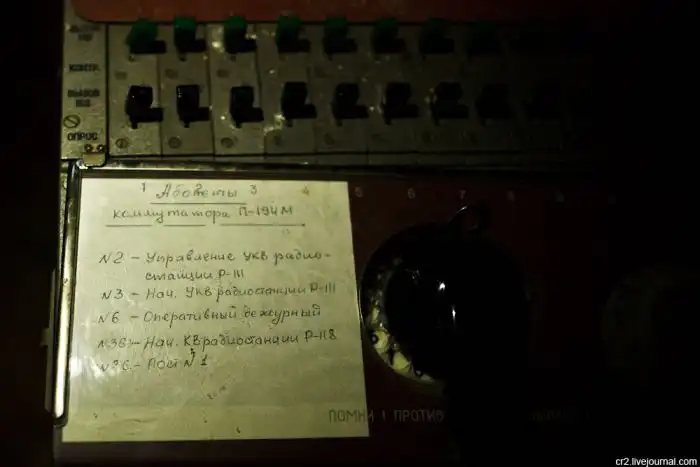 КОНТР.
ВЫЗОВ
ОПРОС
1 3 4 5 6 7 8
Абоненты
коммутатора П-194М
N2 - Управление УКВ радио-
станции Р-111
N3 - Нач. УКВ радиостанции Р-111
N6 - Оперативный дежурный
N35 - Нач. КВ радиостанции Р-118
N36 - Пост N1
ПОМНИ ! ПРОТИВ
cr2.livejournal.com